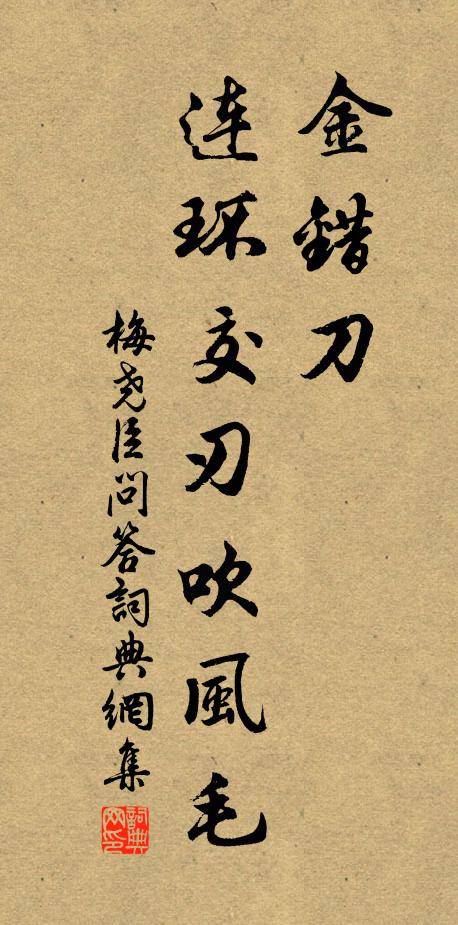 金錯刀
连环交刃吹风毛
梅尧臣问答詞典網集
詞典网印